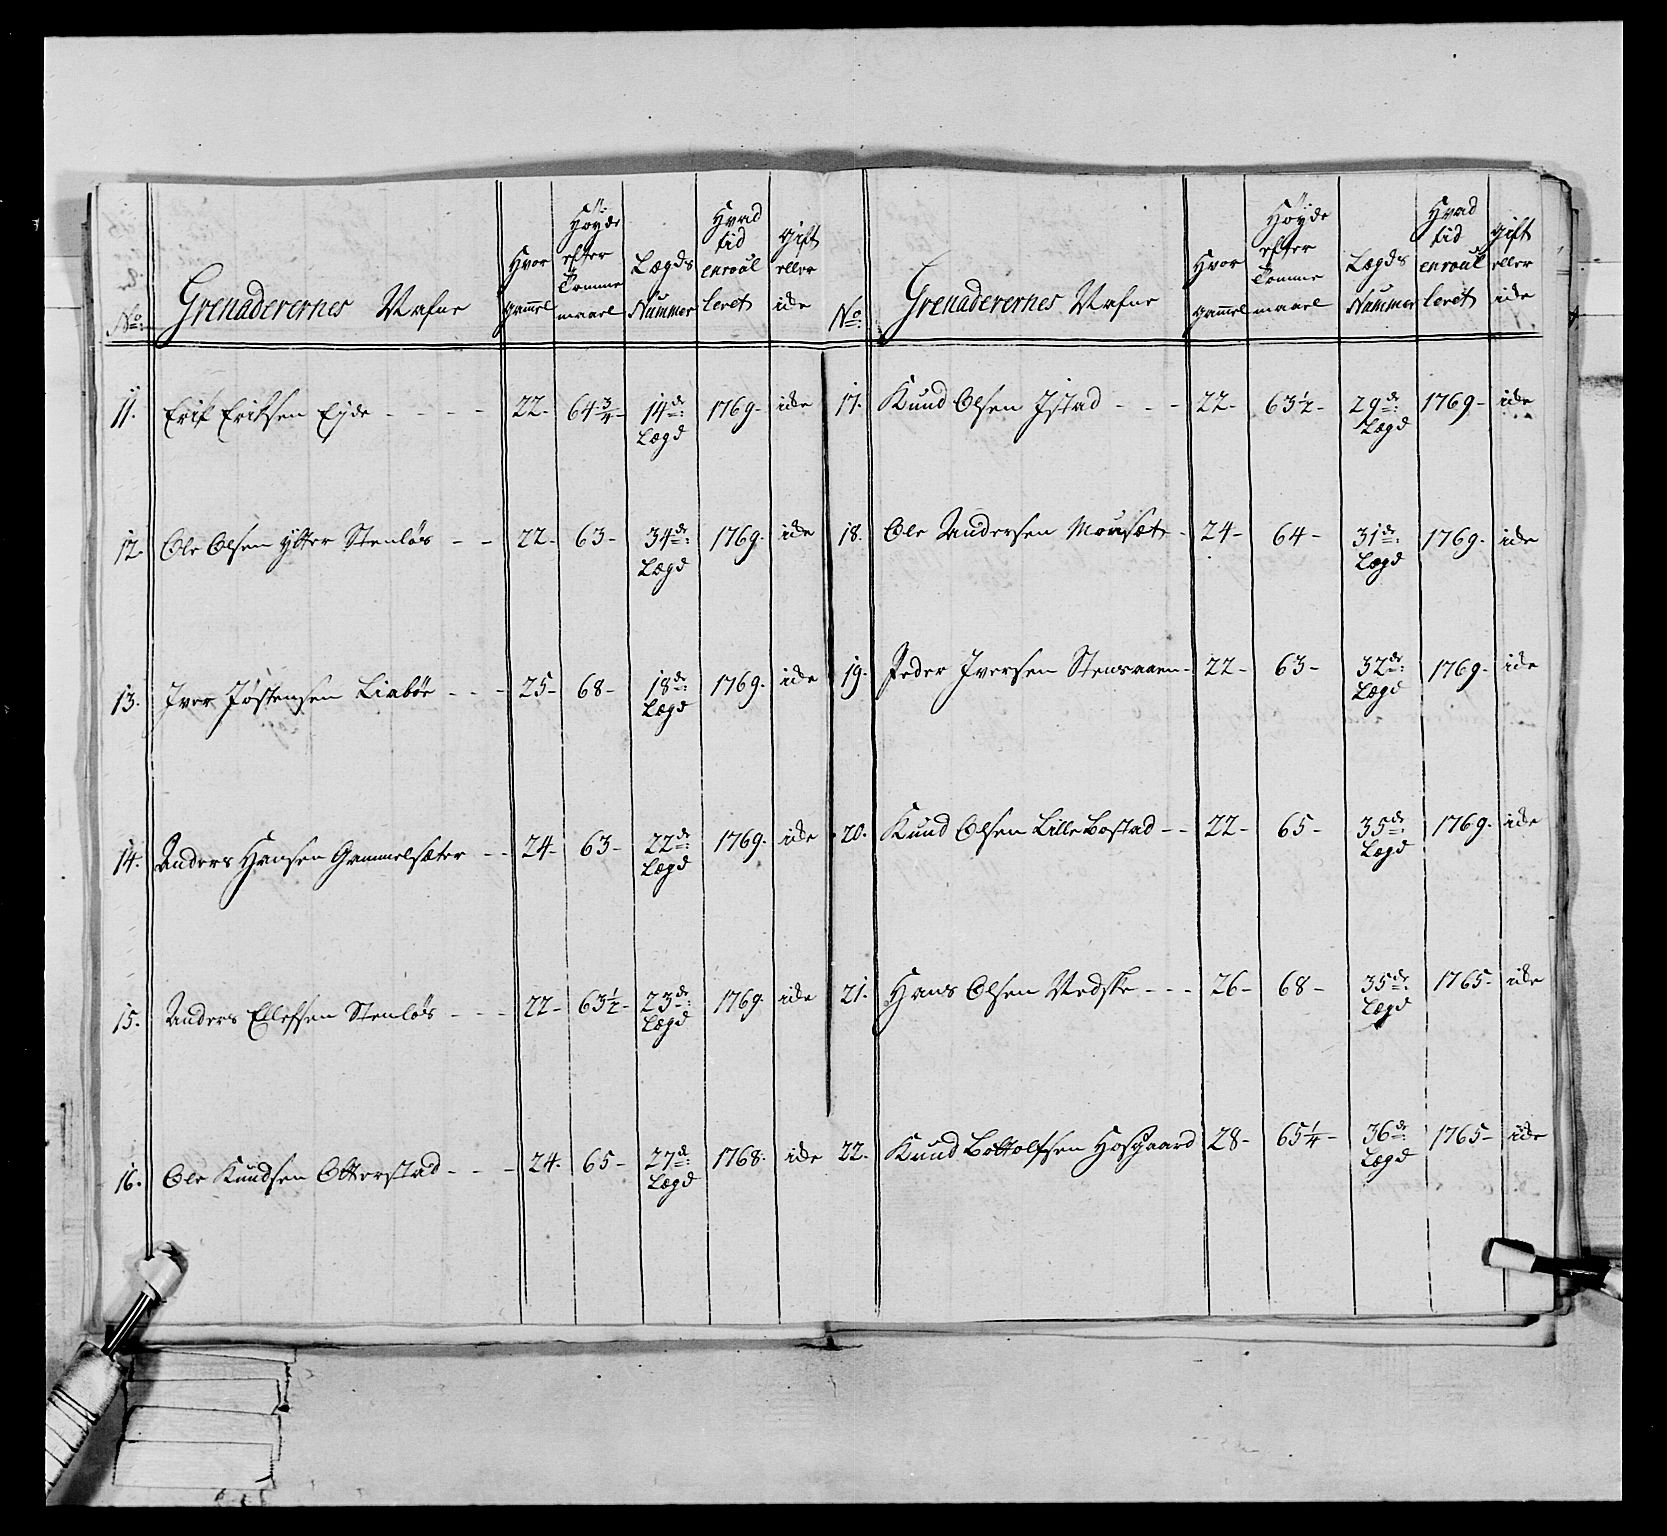 No: Grenaderernes Nafne | Hvor gammel | Høyde efter Tomme maarl | Lægds Nummer | Hvad tid enroul leret | gift eller ide
11. Erik Eriksen Eyde - - - - 22- 64 3/4- 14de: Lægd 1769- ide
12. Ole Olsen Ytter Stenløs - - 22- 63- 34de: Lægd 1769- ide
13. Iver Jøstensen Liabøe - - - 25- 68- 18de: Lægd 1769- ide
14. Anders Hansen Gammelsæter - - 24- 63- 22de: Lægd 1769- ide
15. Anders Ellefsen Stenløs - - - 22- 63 1/2- 23de: Lægd 1769- ide
16. Ole Knudsen Otterstad - - - 24- 65- 27de: Lægd 1768: ide
No: Grenaderernes Nafne | Hvor gammel | Høyde efter Tomme maarl | Lægds Nummer | Hvad tid enroul leret | gift eller ide
17. Knud Olsen Istad - - - 22- 63 1/2- 29de: Lægd 1769- ide
18. Ole Andersen Mousæt - 24- 64- 31de: Lægd 1769- ide
19. Peder Iversen - 22- 63- 32de: Lægd 1769- ide
20. Knud Olsen Lille Bostad - - 22- 65- 35de: Lægd 1769- ide
21. Hans Olsen Nedske - - - 26- 68- 35de: Lægd 1765- ide
22. Knud Bottolfsen Hosgaard 28- 65 1/4- 36de: Lægd 1765- ide